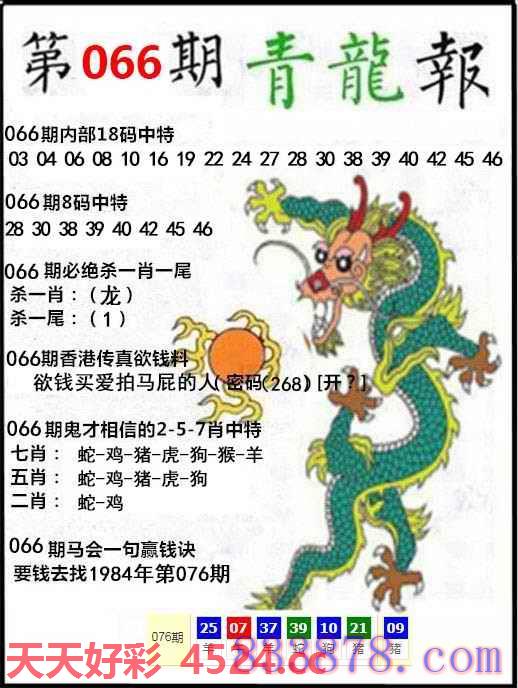 第066期青龍報
066期内部18码中特
03 04 06 08 10 16 19 22 24 27 28 30 38 39 40 42 45 46
066期8码中特
28 30 38 39 40 42 45 46
066期必绝杀一肖一尾
杀一肖：（龙）
杀一尾：（1）
066期香港传真欲钱料
欲钱买爱拍马屁的人(密码(268)[开？]
066期鬼才相信的2-5-7肖中特
七肖： 蛇-鸡-猪-虎-狗-猴-羊
五肖： 蛇-鸡-猪-虎-狗
二肖： 蛇-鸡
066期马会一句赢钱诀
要钱去找1984年第076期
076期 25 07 37 39 10 21 09
羊 羊 蛇 狗 猪 猪
天天好彩 4524.cc
878.com